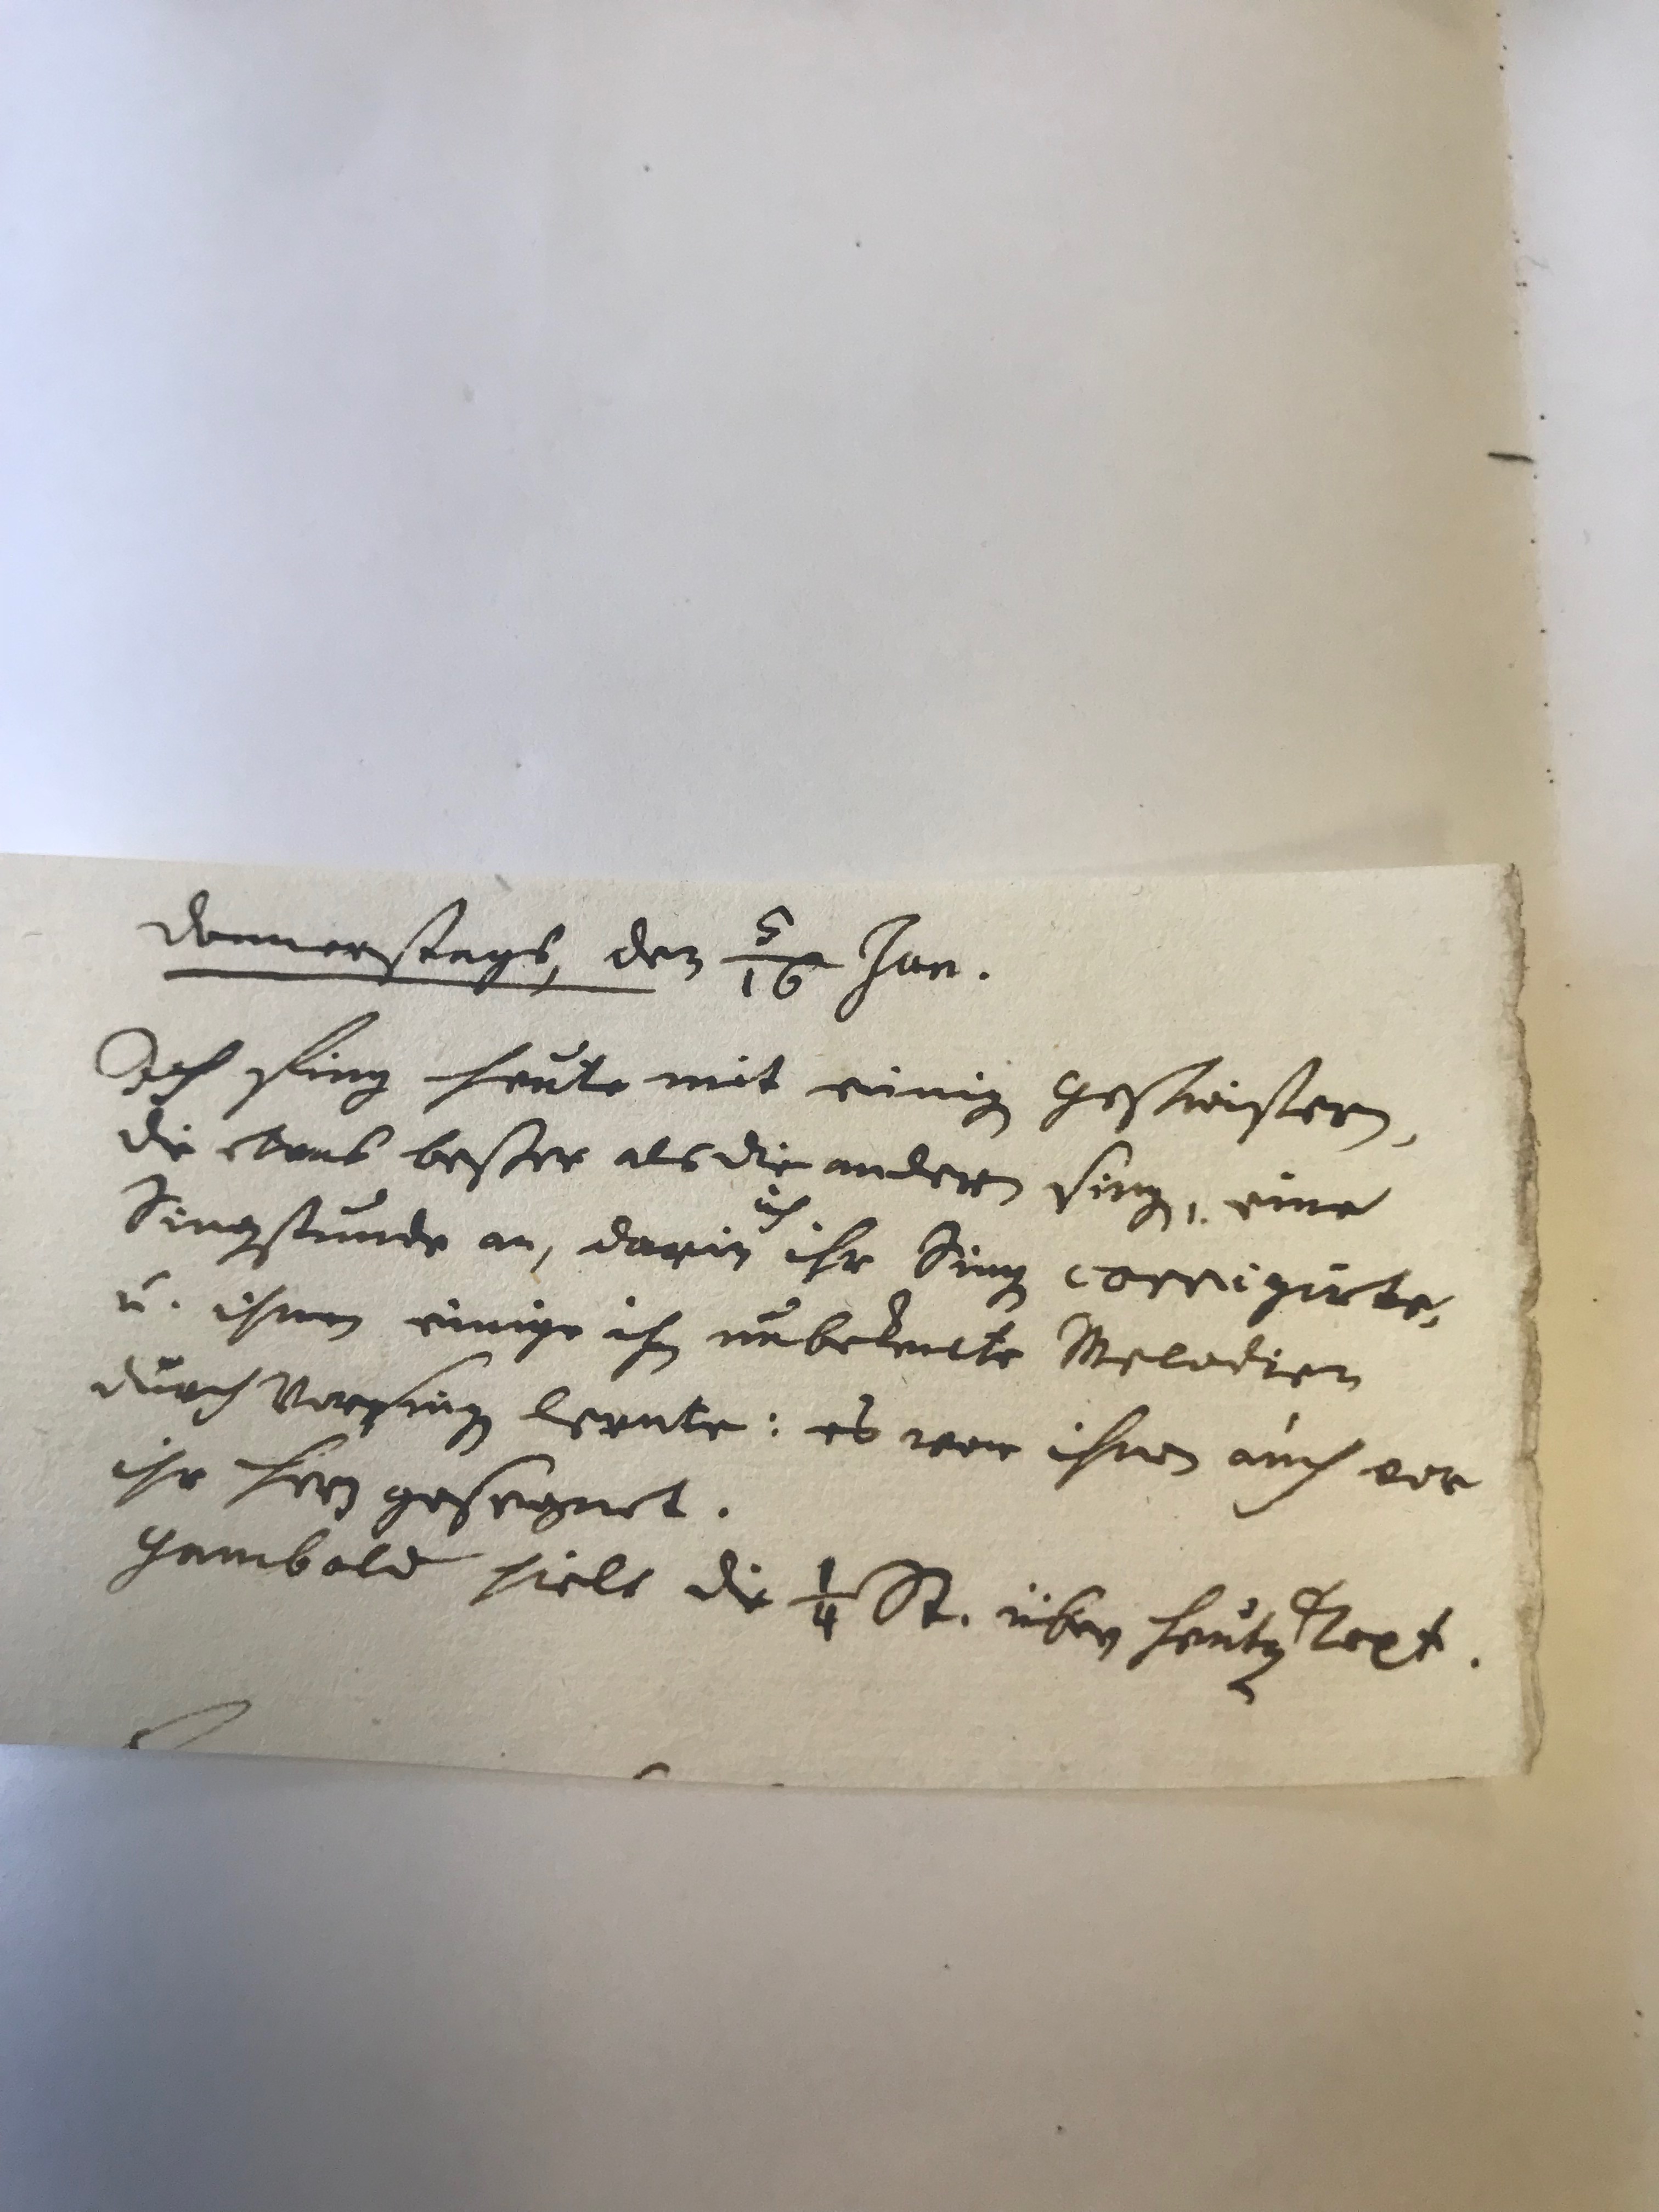 Donnerstags, den 5/16 Jan.
Ich fing heute mit einig Geschwistern,
die etwas besser als die andern sing, eine
Singstunde an, darin ich ihr Sing corrigirte,
u. ihnen einige ihn unbekante Melodien
durch Vorsing lernte: es war ihnen auch vor
ihr Herz gesegnet.
Gambold hielt die 1/4 St. über heutg Text.